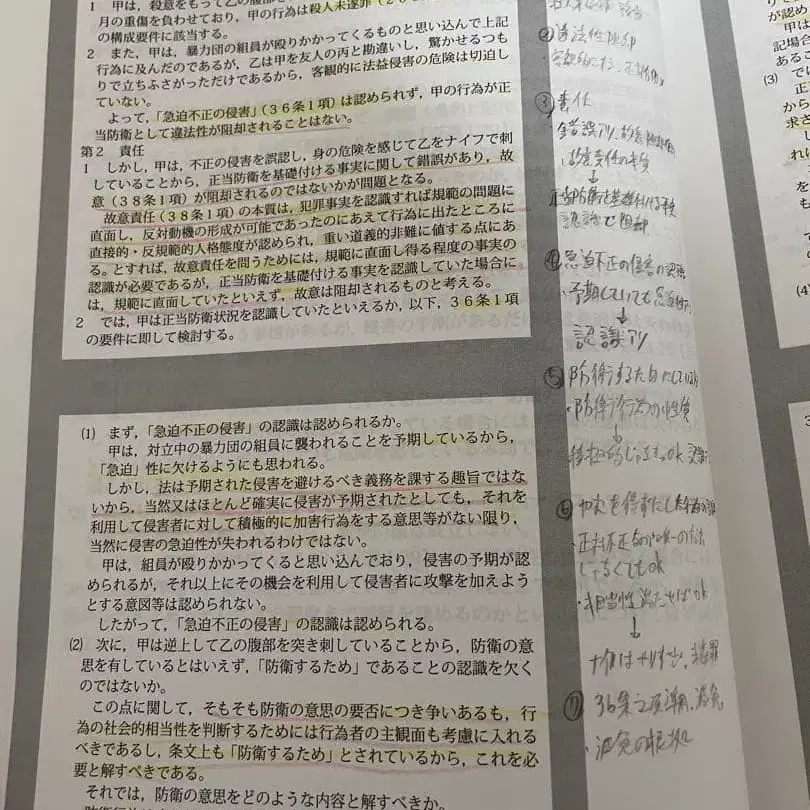 1 甲は,殺意をもって乙の腹部を
月の重傷を負わせており,甲の行為は殺人未遂罪(
の構成要件に該当する。
2 また,甲は,暴力団の組員が殴りかかってくるものと思い込んで上記
行為に及んだのであるが,乙は甲を友人の丙と勘違いし,驚かせるつも
りで立ちふさがっただけであるから,客観的に法益侵害の危険は切迫し
ていない。
よって,「急迫不正の侵害」(36条1項)は認められず,甲の行為が正
当防衛として違法性が阻却されることはない。
第2 責任
1 しかし,甲は,不正の侵害を誤認し,身の危険を感じて乙をナイフで刺
していることから,正当防衛を基礎付ける事実に関して錯誤があり,故
意(38条1項)が阻却されるのではないかが問題となる。
故意責任(38条1項)の本質は,犯罪事実を認識すれば規範の問題に
直面し,反対動機の形成が可能であったのにあえて行為に出たところに
直接的・反規範的人格態度が認められ,重い道義的非難に値する点にあ
る。とすれば,故意責任を問うためには,規範に直面し得る程度の事実の
認識が必要であるが,正当防衛を基礎付ける事実を認識していた場合に
は,規範に直面していたといえず,故意は阻却されるものと考える。
2 では,甲は正当防衛状況を認識していたといえるか,以下,36条1項
の要件に即して検討する。
(1) まず,「急迫不正の侵害」の認識は認められるか。
甲は,対立中の暴力団の組員に襲われることを予期しているから,
「急迫」性に欠けるようにも思われる。
しかし,法は予期された侵害を避けるべき義務を課する趣旨ではな
いから,当然又はほとんど確実に侵害が予期されたとしても,それを
利用して侵害者に対して積極的に加害行為をする意思等がない限り,
当然に侵害の急迫性が失われるわけではない。
甲は,組員が殴りかかってくると思い込んでおり,侵害の予期が認
められるが,それ以上にその機会を利用して侵害者に攻撃を加えよう
とする意図等は認められない。
したがって,「急迫不正の侵害」の認識は認められる。
(2) 次に,甲は逆上して乙の腹部を突き刺していることから,防衛の意
思を有しているとはいえず,「防衛するため」であることの認識を欠く
のではないか。
この点に関して,そもそも防衛の意思の要否につき争いあるも,行
為の社会的相当性を判断するためには行為者の主観面も考慮に入れる
べきであるし,条文上も「防衛するため」とされているから,これを必
要と解すべきである。
それでは,防衛の意思をどのような内容と解すべきか。
② 違法性阻却
③ 責任
錯誤アリ,故意
・故意責任の本質
↓
正当防衛を基礎付ける事実
認識で阻却
④ 急迫不正の侵害の認識
・予期していても急迫
↓
認識アリ
⑤ 防衛するため
・防衛行為の性質
↓
⑥ やむを得ずにした
・正対不正
じゃなくてもOK
・相当性満たせばOK
↓
⑦ 36条2項準用,減免
・減免の根拠